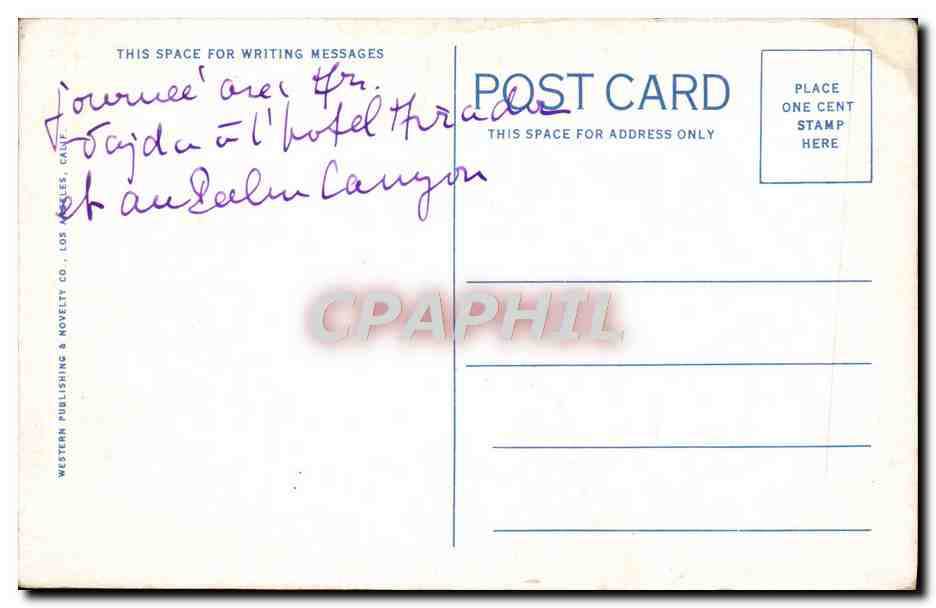 THIS SPACE FOR WRITING MESSAGES
journée avec Mr.
Vajda à l'hotel Mirador
et au Palm Canyon
POST CARD
THIS SPACE FOR ADDRESS ONLY
PLACE
ONE CENT
STAMP
HERE
WESTERN PUBLISHING & NOVELTY CO., LOS ANGELES, CALIF.
CPAPHIL